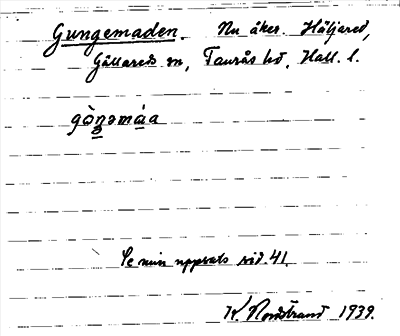 Gungemaden. Nu åker. Häljared,
Gällareds sn, Faurås hd, Hall. l.
gòŋəmáa
Se min uppsats sid. 41.
K. Nordstrand 1939.